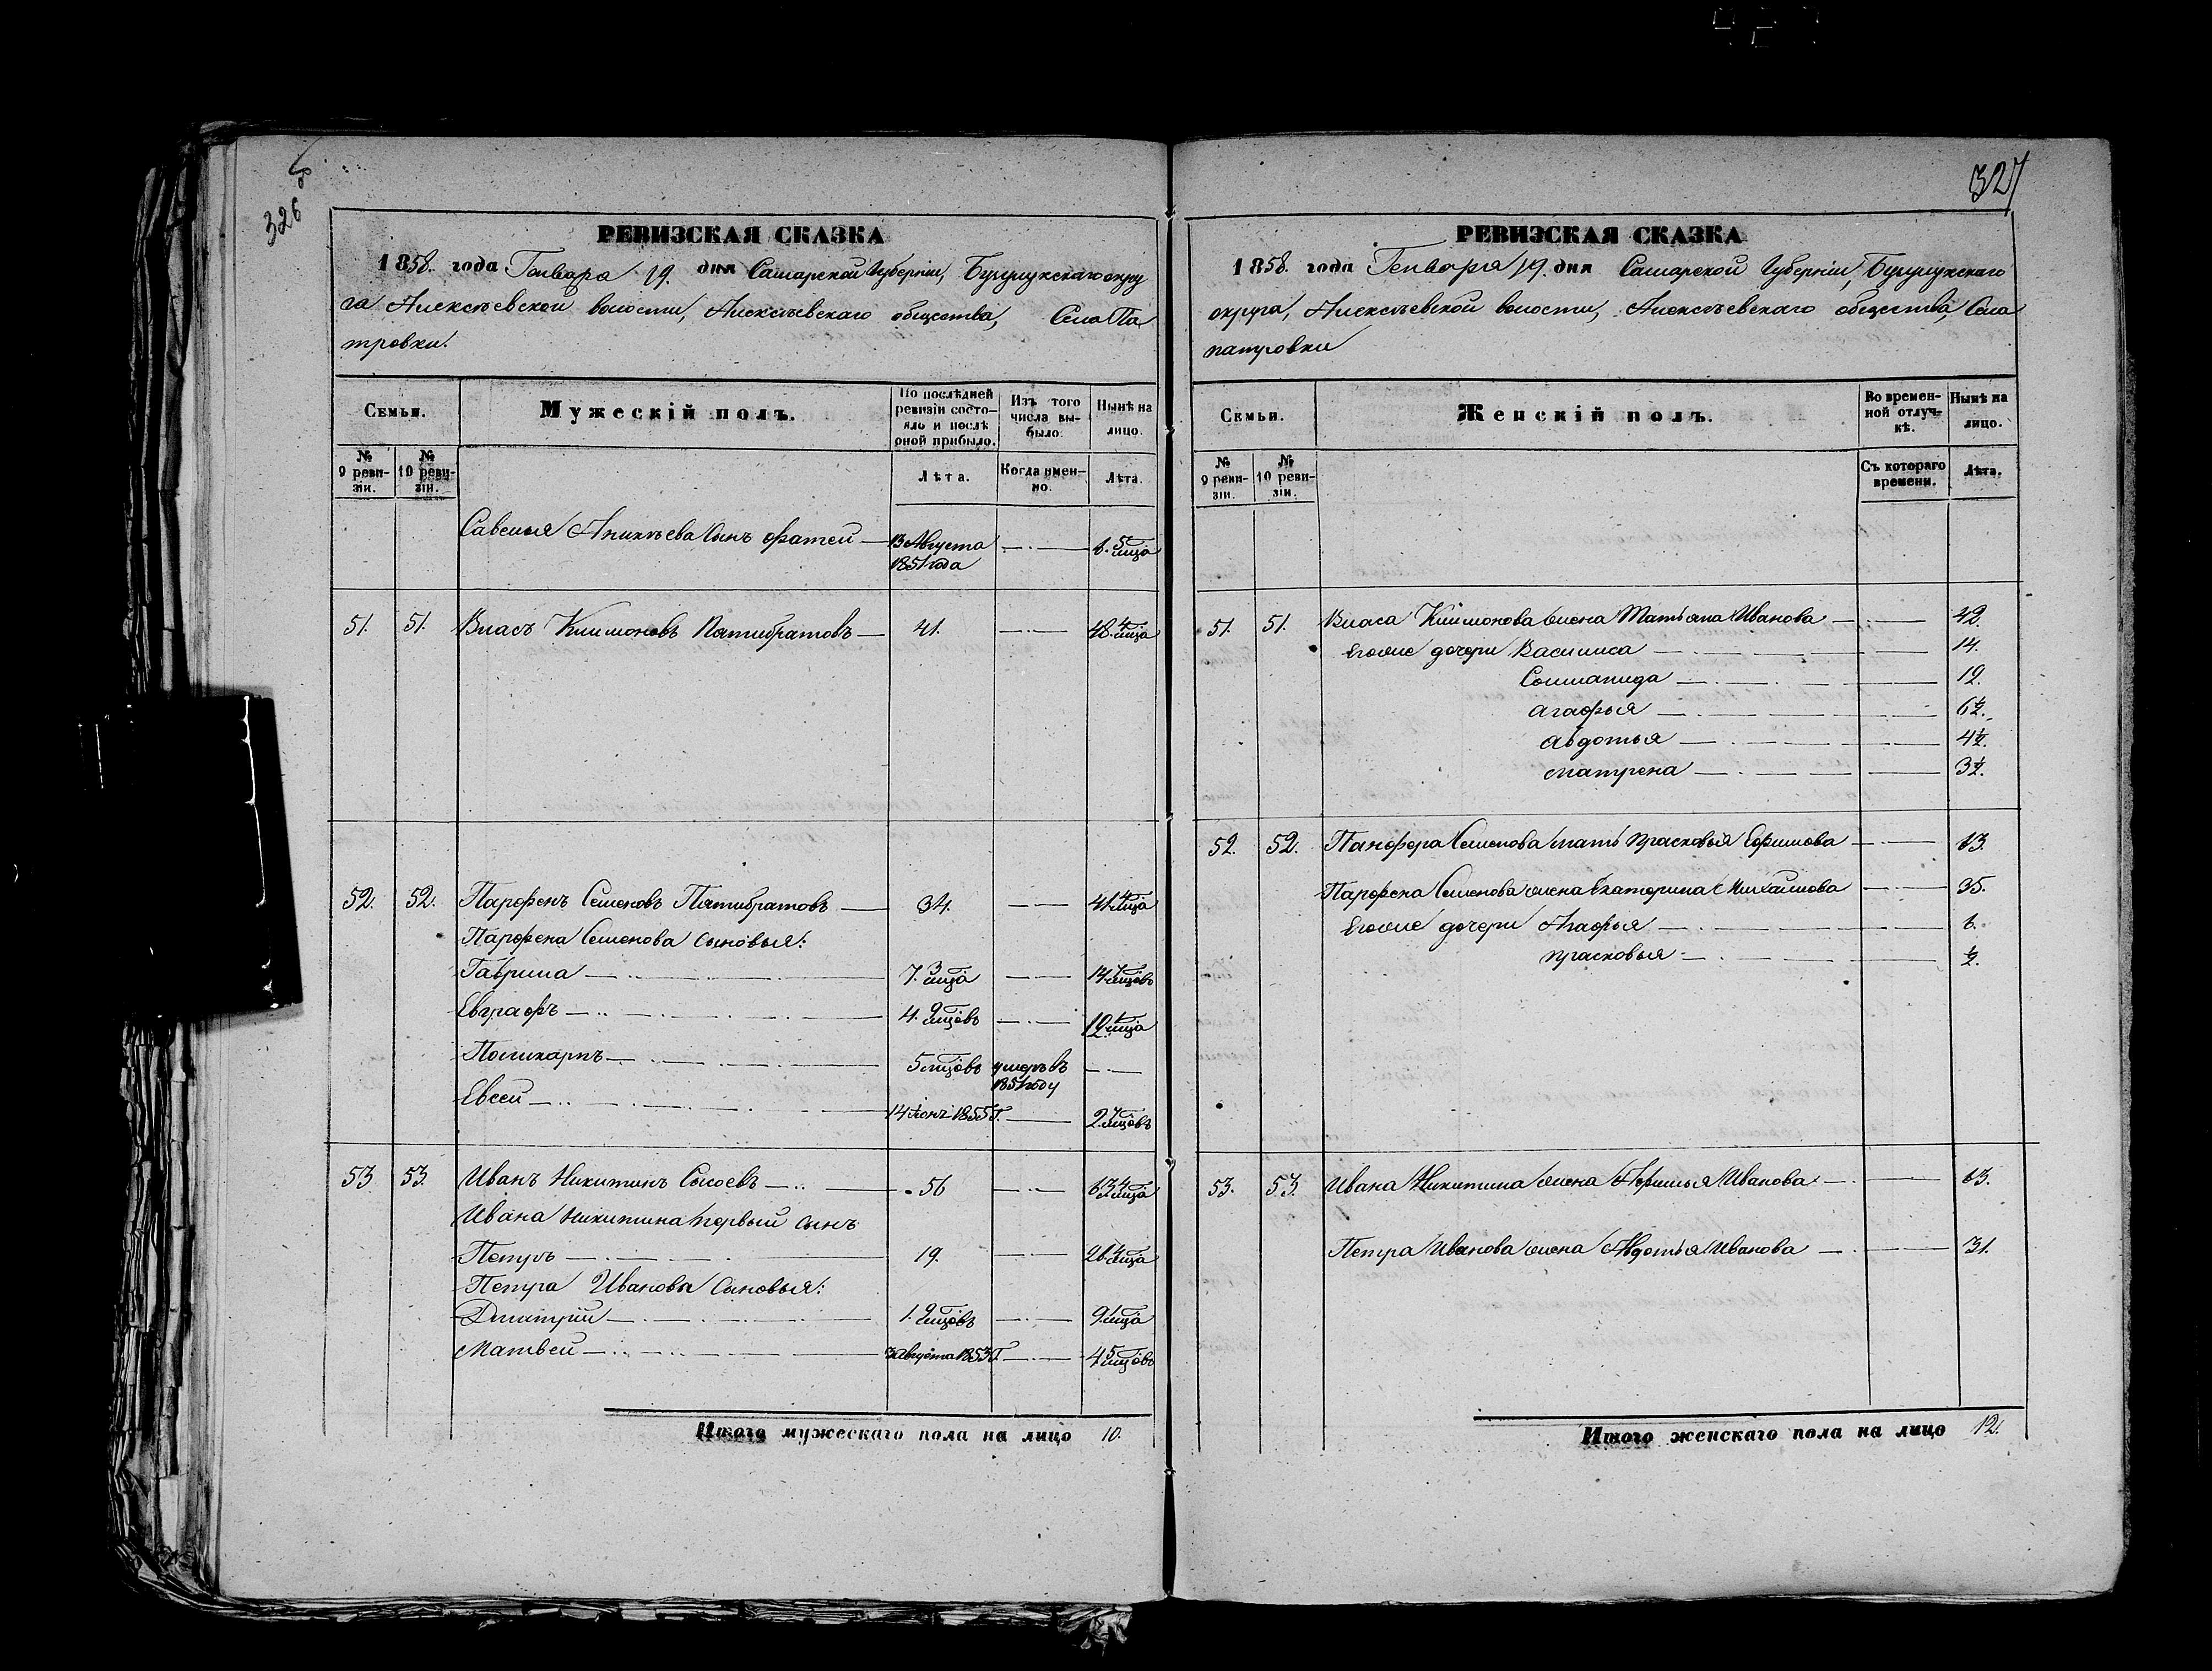 326
РЕВИЗСКАЯ СКАЗКА
1858. года Генваря 19. дня Самарской Губерніи, Бузулукскаго окру
га Алексѣевской волости, Алексѣевскаго общества, Села Па
тровки.
Семьи.
Мужескій полъ.
По послѣдней ревизіи состояло и послѣ оной прибыло.
Изъ того числа выбыло.
Нынѣ на лицо.
№ 9 ревизіи.
№ 10 ревизіи.
Лѣта.
Когда именно.
Лѣта.
Савелья Аникѣева сынъ Фатей — 13 Августа 1851 года —·— 6. 5 мца
51. 51. Власъ Климоновъ Пятибратовъ — 41. —·— 48. 4 мца
52. 52. Парфенъ Семеновъ Пятибратовъ — 34. —— 41. 4 мца
Парфена Семенова сыновья:
Гаврила — 7. 3 мца —— 14. 7 мцовъ
Евграфъ — 4. 9 мцовъ —·— 12. 1 мца
Поликарпъ — 5 мцовъ умеръ въ 1851 году —·—
Евсей — 14 Іюня 1855 Г. — 2. 7 мцовъ
53 53. Иванъ Никитинъ Сысоевъ — 56 —·— 63. 4 мца
Ивана Никитина первый сынъ
Петръ — 19. —·— 26. 4 мца
Петра Иванова сыновья:
Дмитрій — 1. 9 мцовъ —·— 9. 1 мца
Матвей — 3 Августа 1853 Г —·— 4. 5 мцовъ
Итого мужескаго пола на лицо 10.
327
РЕВИЗСКАЯ СКАЗКА
1858. года Генваря 19. дня Самарской Губерніи, Бузулукскаго
округа, Алексѣевской волости, Алексѣевскаго общества, Села
патровки
Семьи.
Женскій полъ.
Во временной отлучкѣ.
Нынѣ на лицо.
№ 9 ревизіи.
№ 10 ревизіи.
Съ котораго времени.
Лѣта.
51. 51. Власа Климонова жена Татьяна Иванова — 42.
Егоже дочери Василиса — 14.
Соломанида — 12.
Агафья — 6½.
Авдотья — 4½.
Матрена — 3½.
52. 52. Панфера Семенова мать Прасковья Ефимова — 63.
Парфена Семенова жена Екатерина Михайлова — 35.
Егоже дочери Агафья — 6.
Прасковья — ½.
53. 53. Ивана Никитина жена Афимья Иванова — 63.
Петра Иванова жена Авдотья Иванова — 31.
Итого женскаго пола на лицо 12.